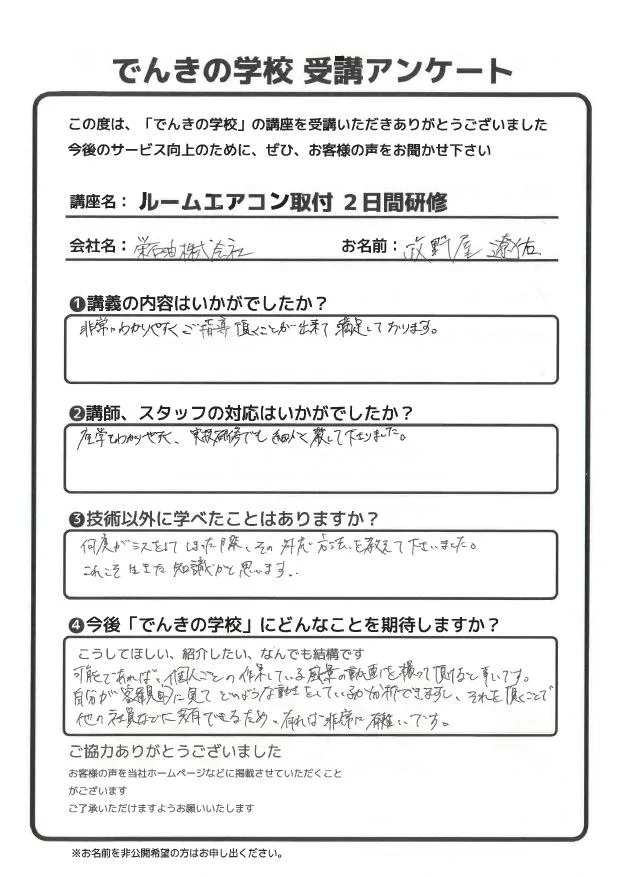 でんきの学校 受講アンケート
この度は、「でんきの学校」の講座を受講いただきありがとうございました
今後のサービス向上のために、ぜひ、お客様の声をお聞かせ下さい
講座名： ルームエアコン取付 ２日間研修
会社名： 栄石油株式会社 お名前： 牧野屋 遼佑
❶講義の内容はいかがでしたか？
非常にわかりやすくご指導頂くことが出来て満足しております。
❷講師、スタッフの対応はいかがでしたか？
座学もわかりやすく、実技研修でも細かく教えて下さりました。
❸技術以外に学べたことはありますか？
何度かミスをしてしまった際、その対応方法を教えて下さいました。
これこそ生きた知識かと思います。
❹今後「でんきの学校」にどんなことを期待しますか？
こうしてほしい、紹介したい、なんでも結構です
可能であれば、個人ごとの作業している風景の動画を撮って頂けると幸いです。
自分が客観的に見てどのような動きをしているか分析できますし、それを頂くことで
他の社員などに共有できるため、有れば非常に有難いです。
ご協力ありがとうございました
お客様の声を当社ホームページなどに掲載させていただくこと
がございます
ご了承いただけますようお願いいたします
※お名前を非公開希望の方はお申し出ください。